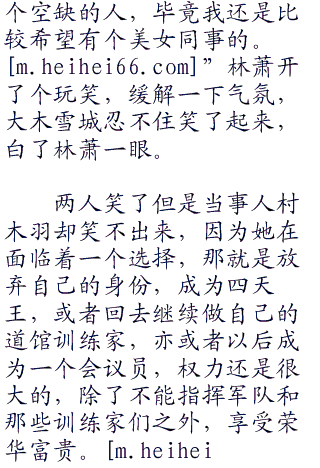 个空缺的人，毕竟我还是比
较希望有个美女同事的。
[m.heihei66.com]”林萧开
了个玩笑，缓解一下气氛，
大木雪城忍不住笑了起来，
白了林萧一眼。
两人笑了但是当事人村
木羽却笑不出来，因为她在
面临着一个选择，那就是放
弃自己的身份，成为四天
王，或者回去继续做自己的
道馆训练家，亦或者以后成
为一个会议员，权力还是很
大的，除了不能指挥军队和
那些训练家们之外，享受荣
华富贵。[m.heihei